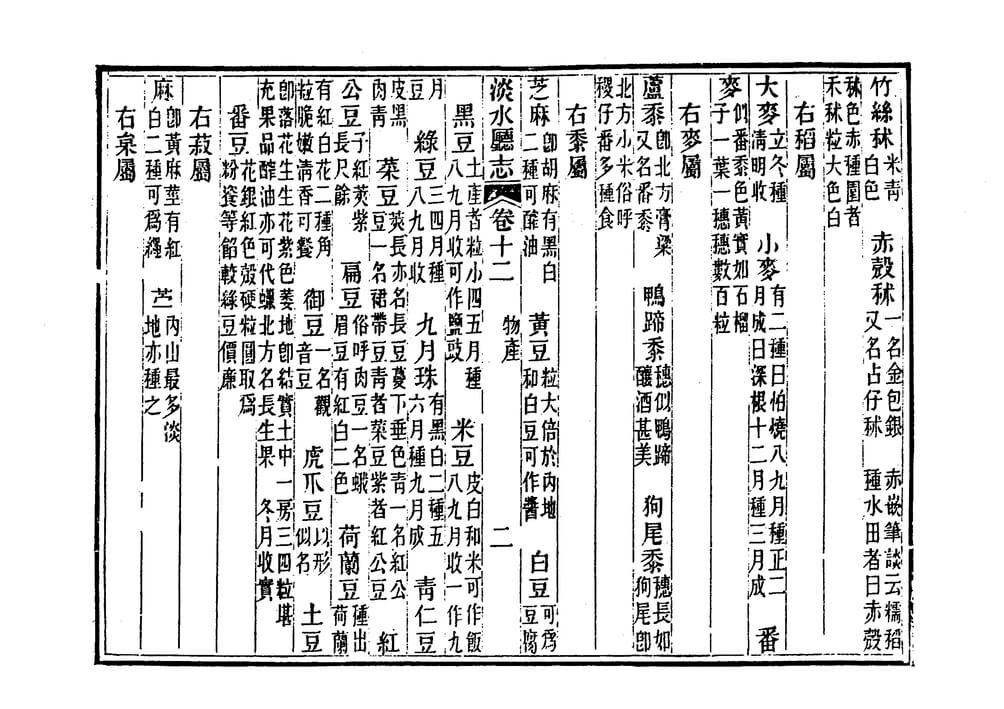 竹絲秫米青白色　赤殼秫一名金包銀又名占仔秫　赤嵌筆談云糯稻種水田者曰赤殼
秫色赤種園者禾秫粒大色白
右稻屬
大麥立冬種清明收　小麥有二種曰怕燒八九月種正二月成曰深根十二月種三月成　番
麥似番黍色黃實如石榴子一葉一穗穗數百粒
右麥屬
蘆黍卽北方膏粱又名番黍　鴨蹄黍穗似鴨蹄釀酒甚美　狗尾黍穗長如狗尾卽
北方小米俗呼稷仔番多種食
右黍屬
芝麻卽胡麻有黑白二種可醡油　黃豆粒大倍於內地和白豆可作醬　白豆可爲豆腐
淡水廳志　卷十二　物產　二
黑豆土產者粒小四五月種八九月收可作鹽豉　米豆皮白和米可作飯八九月收一作九
月豆　綠豆三四月種八九月收　九月珠有黑白二種五六月種九月成　青仁豆
皮黑肉青　菜豆莢長亦名長豆蔓下垂色青一名紅公豆一名裙帶豆青者菜豆紫者紅公豆　紅
公豆子紅莢紫長尺餘　扁豆俗呼肉豆一名蛾眉豆有紅白二色　荷蘭豆種出荷蘭
有紅白花二種角粒脆嫩清香可餐　御豆一名觀音豆　虎爪豆以形似名　土豆
卽落花生生花紫色萎地卽結實土中一房三四粒堪充果品醡油亦可代蠟北方名長生果　冬月收實
番豆花銀紅色殼硬粒圓取爲粉餈等餡較綠豆價廉
右菽屬
麻卽黃麻莖有紅白二種可爲繩　苎內山最多淡地亦種之
右枲屬